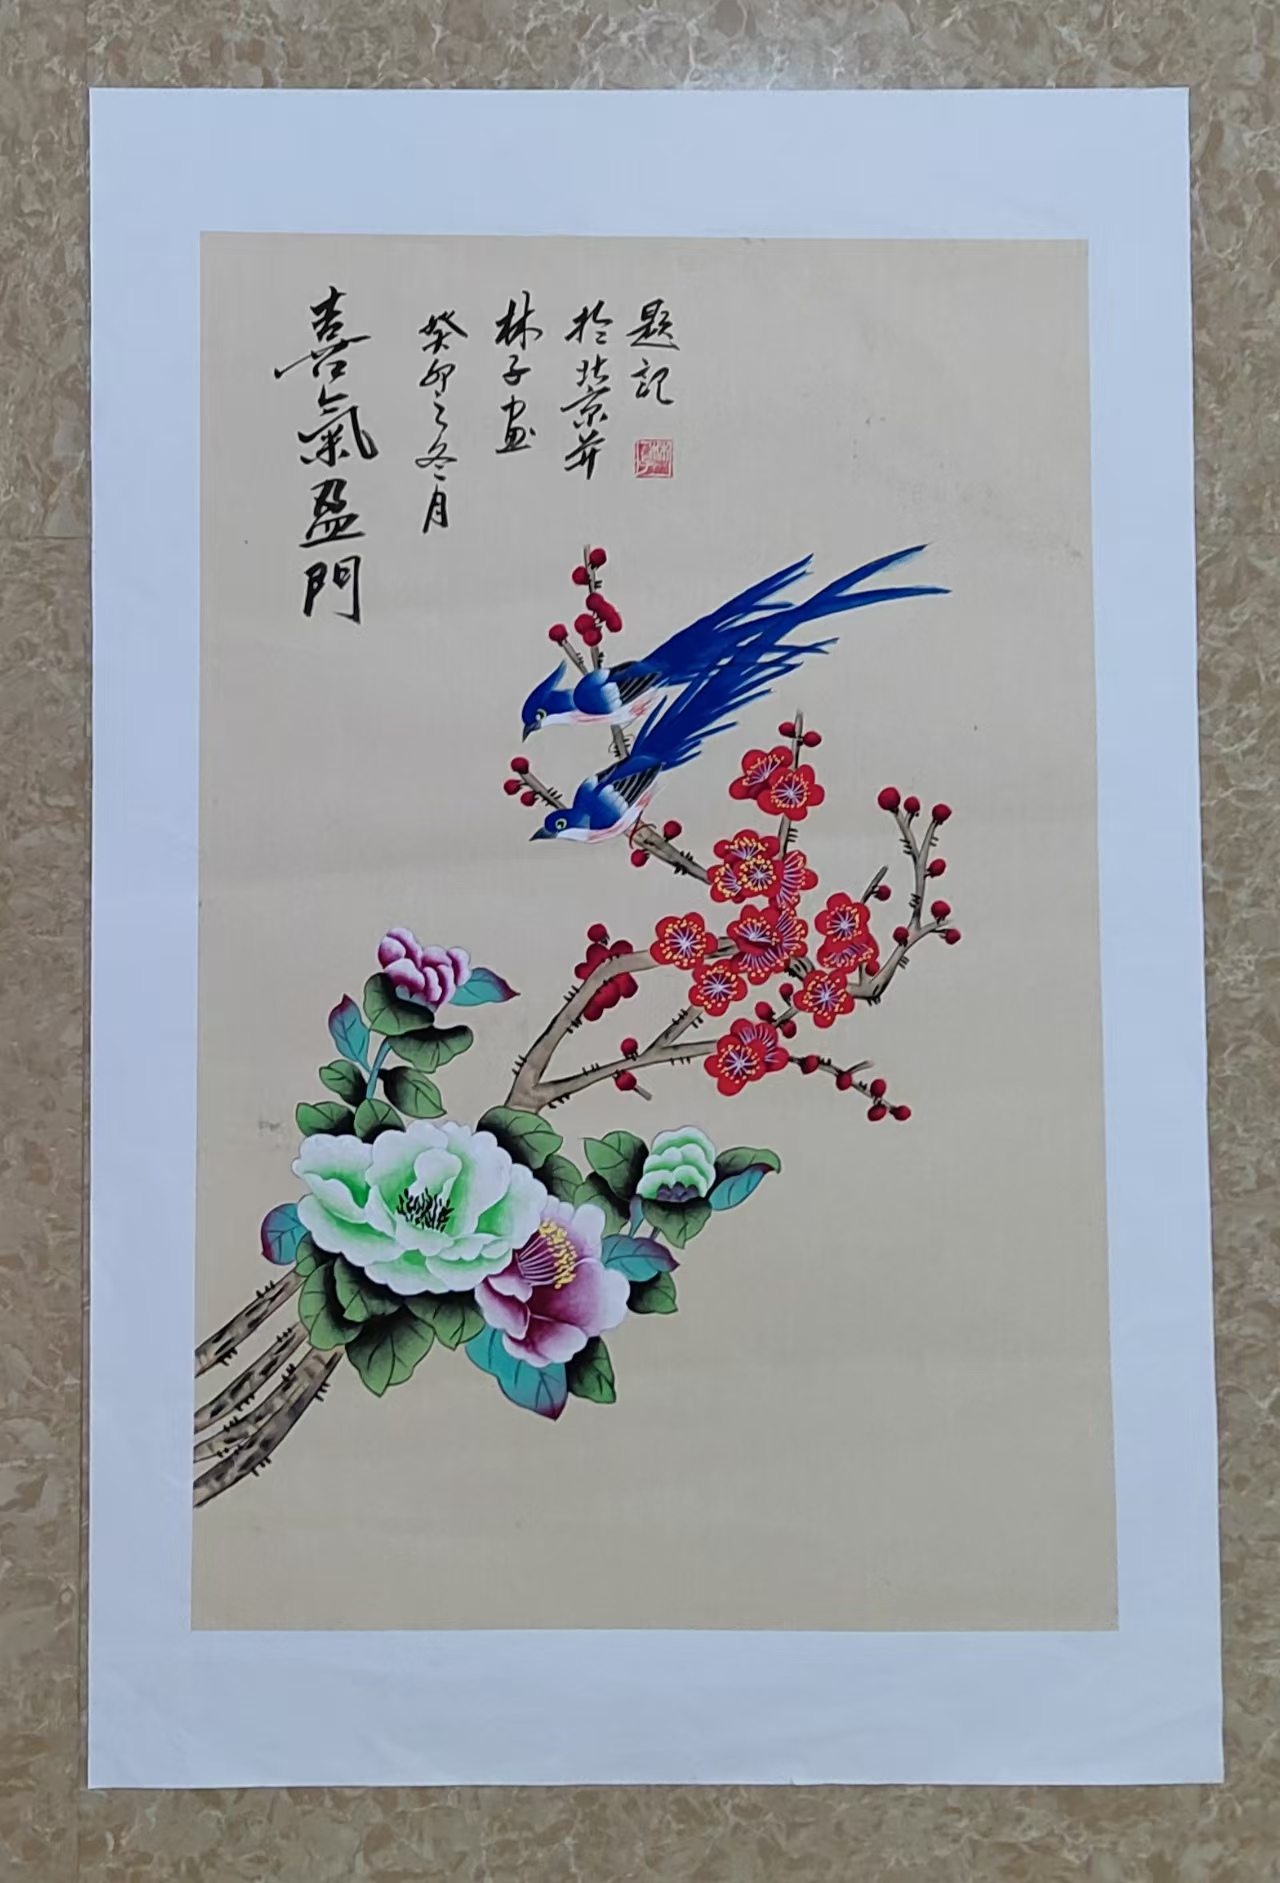 喜氣盈門
癸卯之冬月
林子画
於北京并
题记